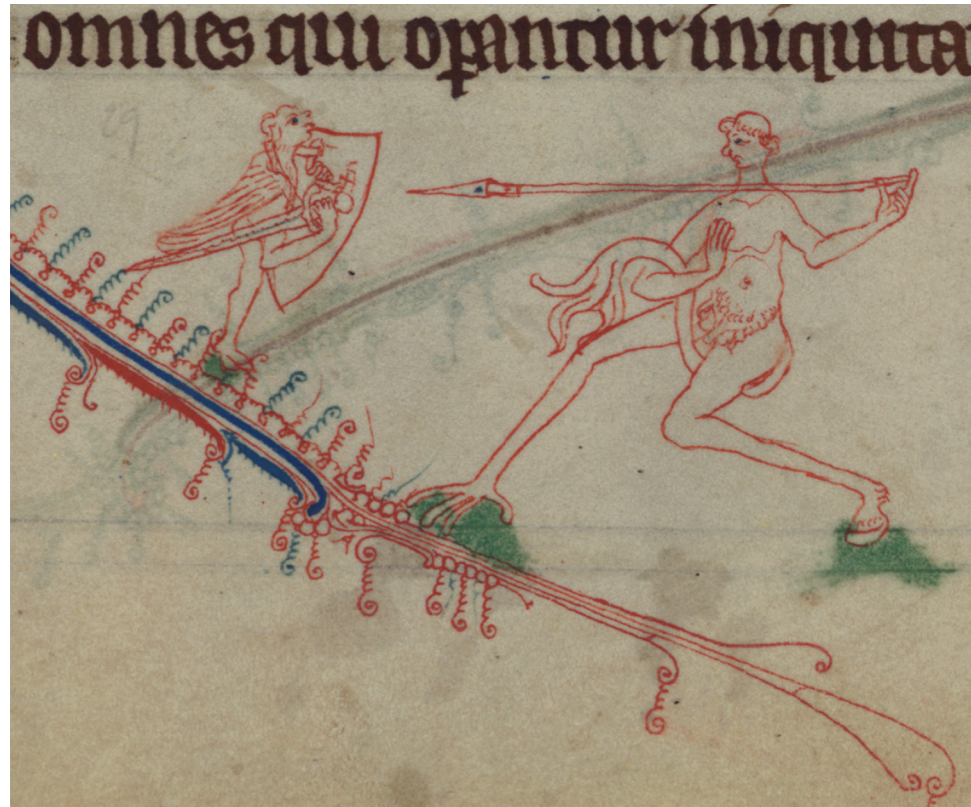 omnes qui oꝑantur iniquita
29